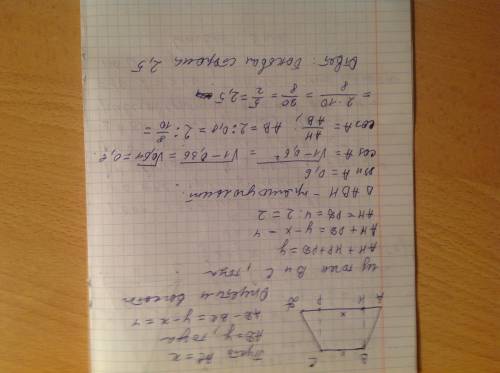 B C
x
x
A H P D
Пусть BC = x
AD = y, тогда
AD − BC = y − x = 4
Опустим высоты
из точек B и C, тогда
AH + HP + PD = y
AH + PD = y − x = 4
AH = PD = 4 : 2 = 2
Δ ABH – прямоугольный.
sin A = 0,6
cos A = √1−0,6² = √1−0,36 = √0,64 = 0,8
cos A = AH/AB; AB = 2:0,8 = 2 : 8/10 =
= 2·10/8 = 20/8 = 5/2 = 2,5
Ответ: боковая сторона 2,5